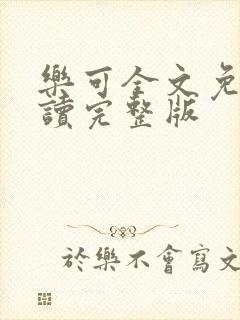 樂可全文免
讀完整版
於樂不會寫文